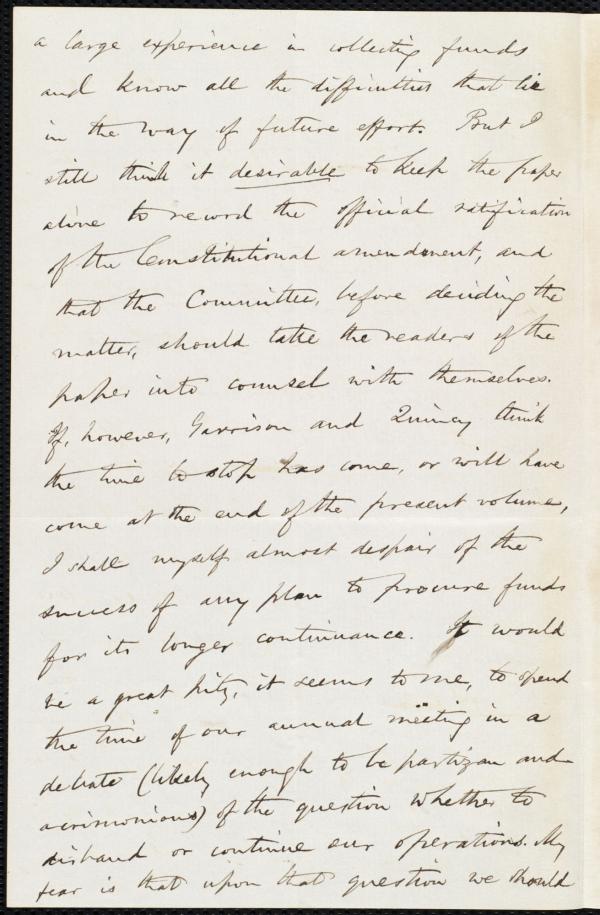 a large experience in collecting funds
and know all the difficulties that lie
in the way of future efforts. But I
still think it desirable to keep the paper
alive to record the official ratification
of the Constitutional amendment, and
that the Committee, before deciding the
matter, should take the readers of the
paper into counsel with themselves.
If, however, Garrison and Quincy think
the time to stop has come, or will have
come at the end of the present volume,
I shall myself almost despair of the
success of any plan to procure funds
for its longer continuance. It would
be a great pity, it seems to me, to spend
the time of our annual meeting in a
debate (likely enough to be partizan and
acrimonious) of the question whether to
disband or continue our operations. My
fear is that upon that question we should